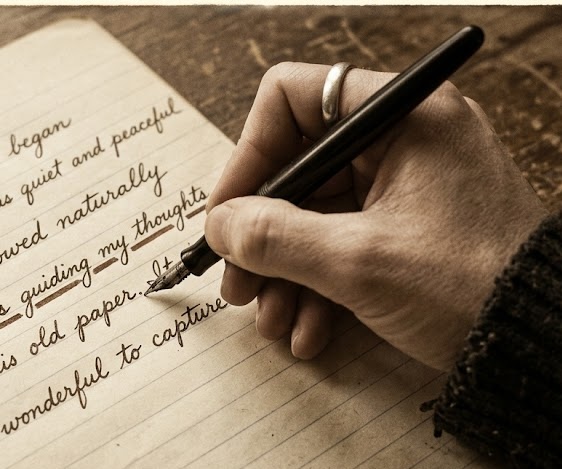 began
s quiet and peaceful
owed naturally
s guiding my thoughts
is old paper. It
wonderful to capture